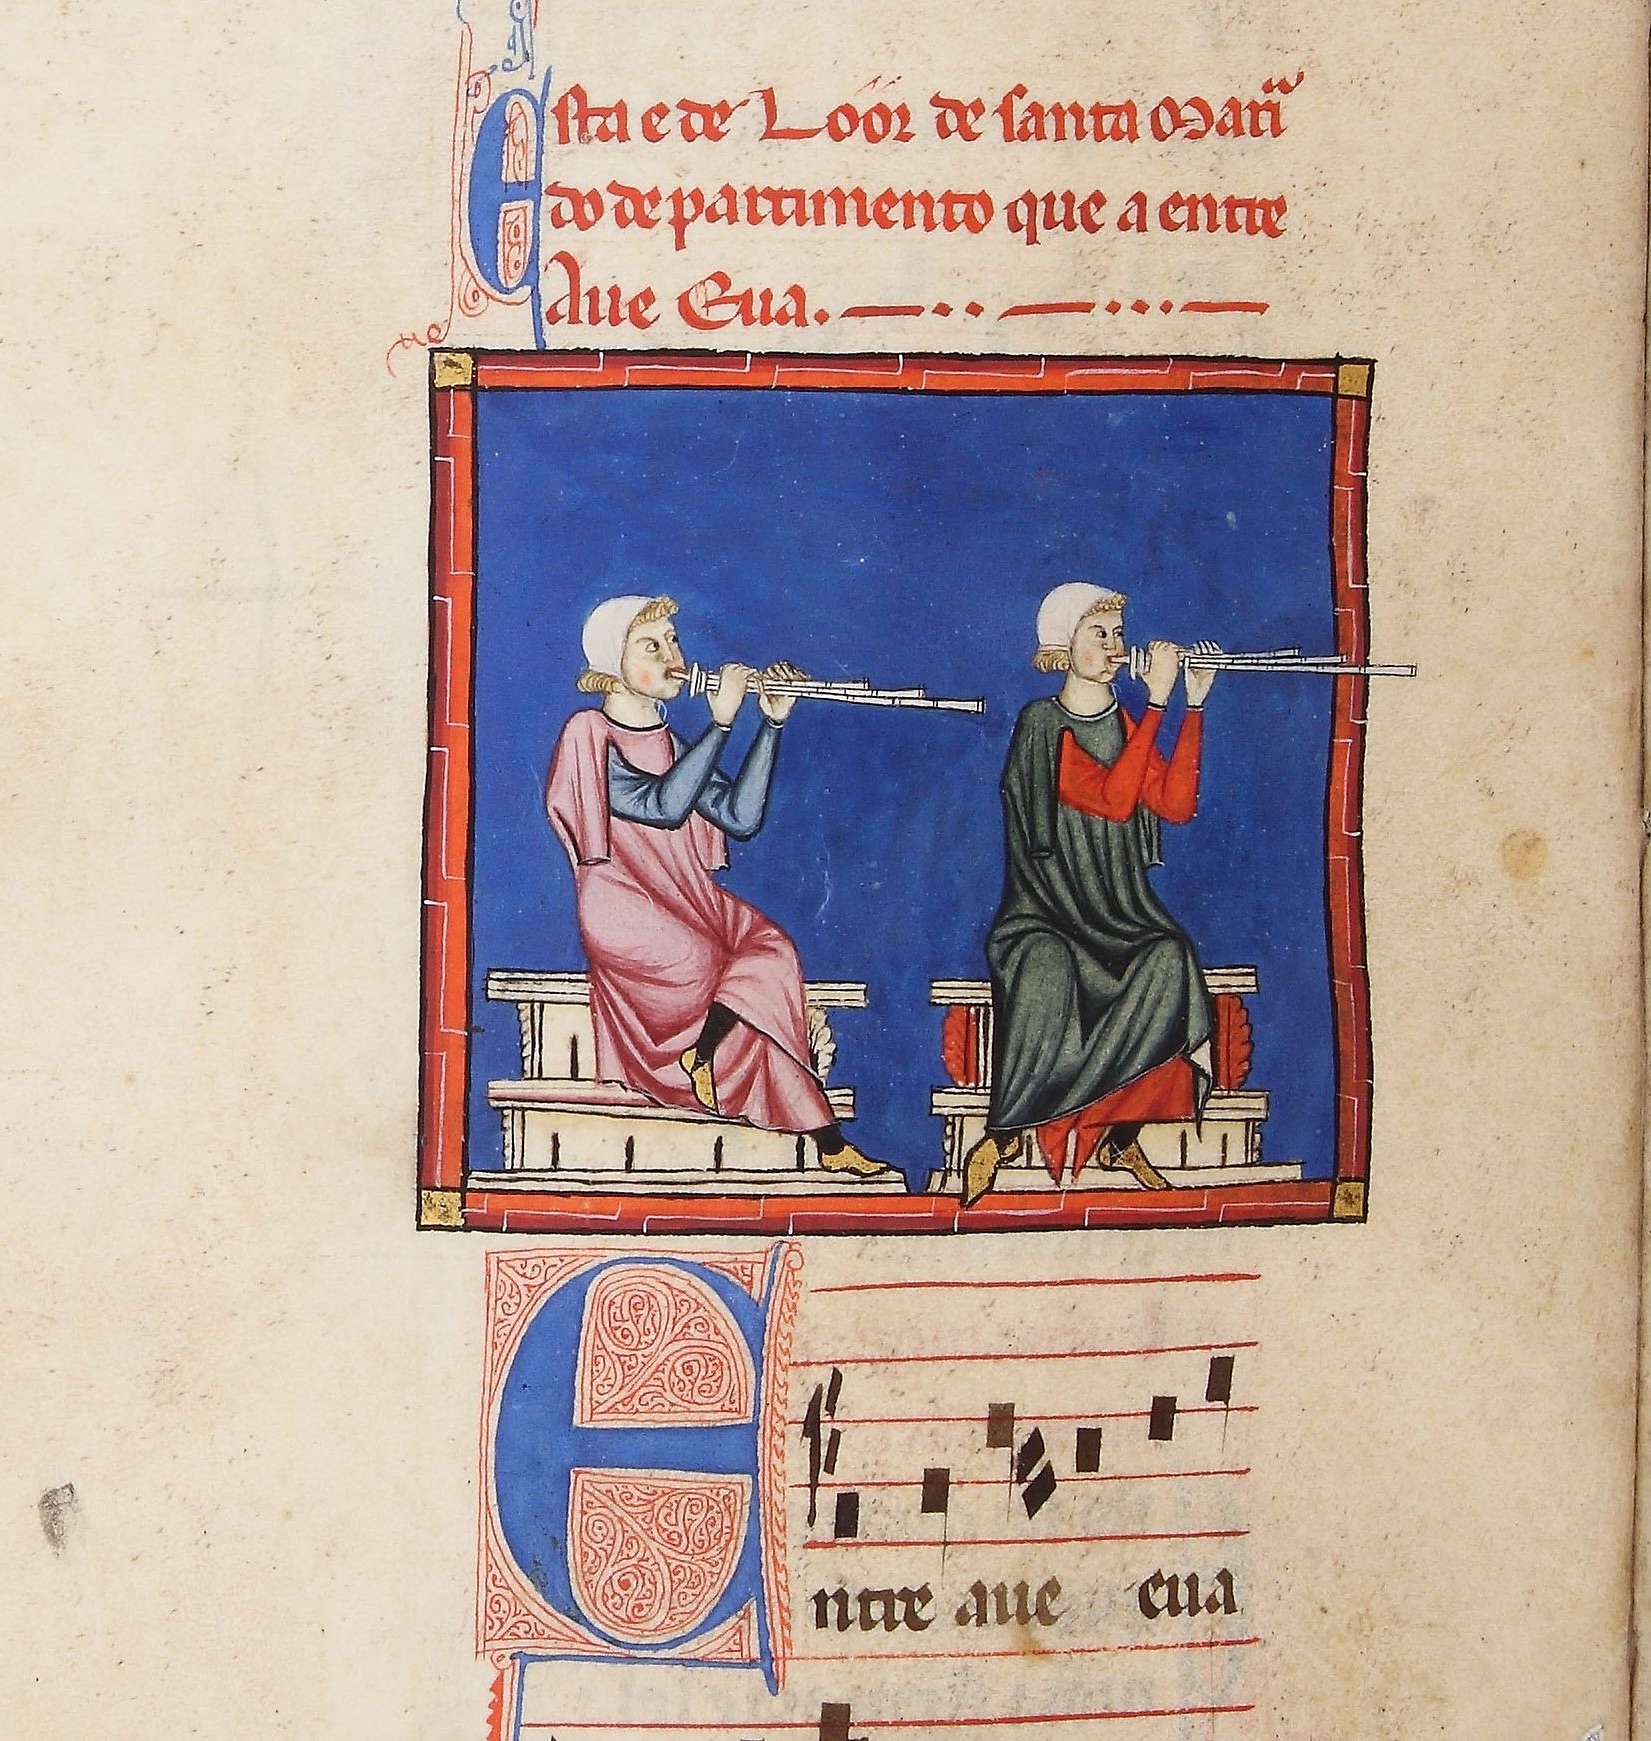 Esta e de Loor de santa Maria
do departimento que a entre
Aue Eua.
Entre aue eua